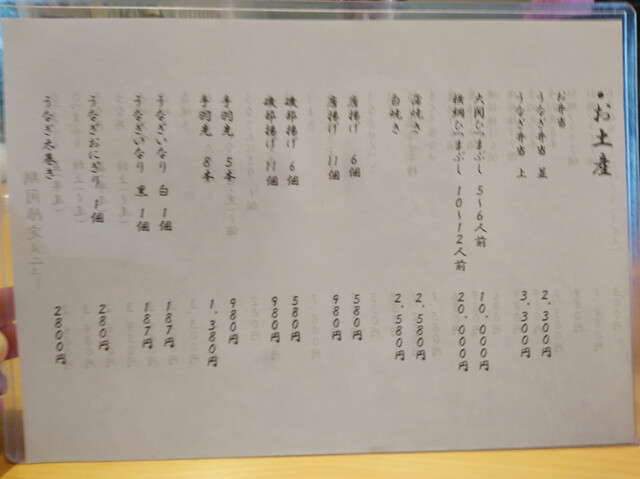 •お土産
お弁当
うなぎ弁当 並 2,300円
うなぎ弁当 上 3,300円
大関ひつまぶし 5〜6人前 10,000円
横綱ひつまぶし 10〜12人前 20,000円
蒲焼き 2,580円
白焼き 2,580円
唐揚げ 6個 580円
唐揚げ 11個 980円
磯部揚げ 6個 580円
磯部揚げ 11個 980円
手羽先 5本 980円
手羽先 8本 1,380円
うなぎいなり 白 1個 187円
うなぎいなり 黒 1個 187円
うなぎおにぎり 1個 280円
うなぎ太巻き 2800円